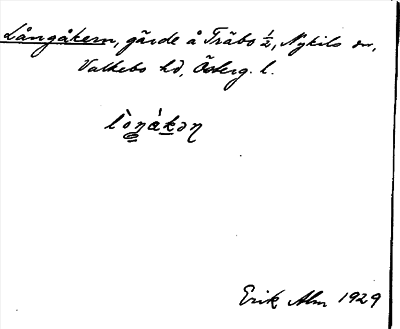 Långåkern, gärde å Träbo ½, Nykils sn,
Valkebo hd, Österg. l.
Erik Alm 1929